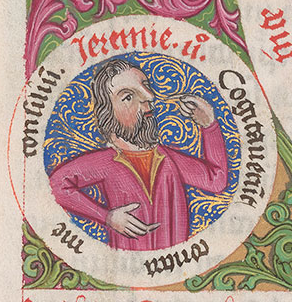 Jeremie. 11º
Cogitauerūt
contra
me
consiliū.